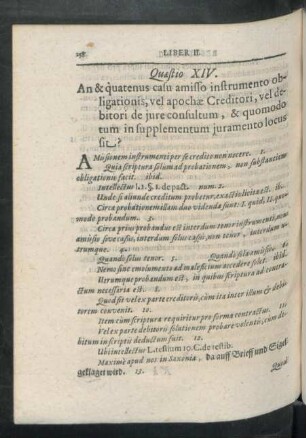 LIBER II.
Quæstio XIV.
An & quatenus casu amisso instrumento ob-
ligationis, vel apochæ Creditori, vel de-
bitori de jure consultum, & quomodo
tum in supplementum juramento locus
sit?
AMissionem instrumenti per se credito non nocere. 1.
Quia scriptura solùm ad probationem, non substantiam
obligationis facit. ibid.
Intellectus l. 1. §. 1. de pact. num. 2.
Unde si aliunde creditum probetur, exactè licita est. ib.
Circa probationem itam duo videnda sunt: I. quid. II. quo-
modo probandum. 3.
Circa prius probandus est interdum tenor instrumenti, non
amissio sive casus, interdum solus casus, non tenor, interdum u-
trumque. 4.
Quandò solus tenor. 5. Quandò solus casus. 6.
Nemo sine emolumento ad maleficium accedere solet. ibid.
Utrumque probandum est, in quibus scriptura ad contra-
ctum necessaria est. 8.
Quod sit vel ex parte creditoris, cùm ita inter ipsum & debi-
torem convenit. 10.
Item cùm scriptura requiritur pro forma contractus. 11.
Vel ex parte debitoris solutionem probare volentis, cùm de-
bitum in scriptis deductum fuit. 12.
Ubi intellectus L. testium 19. C. de testib.
Maximè apud nos in Saxonia, da auff Brieff und Sigel
geklaget wird. 13.
Quod